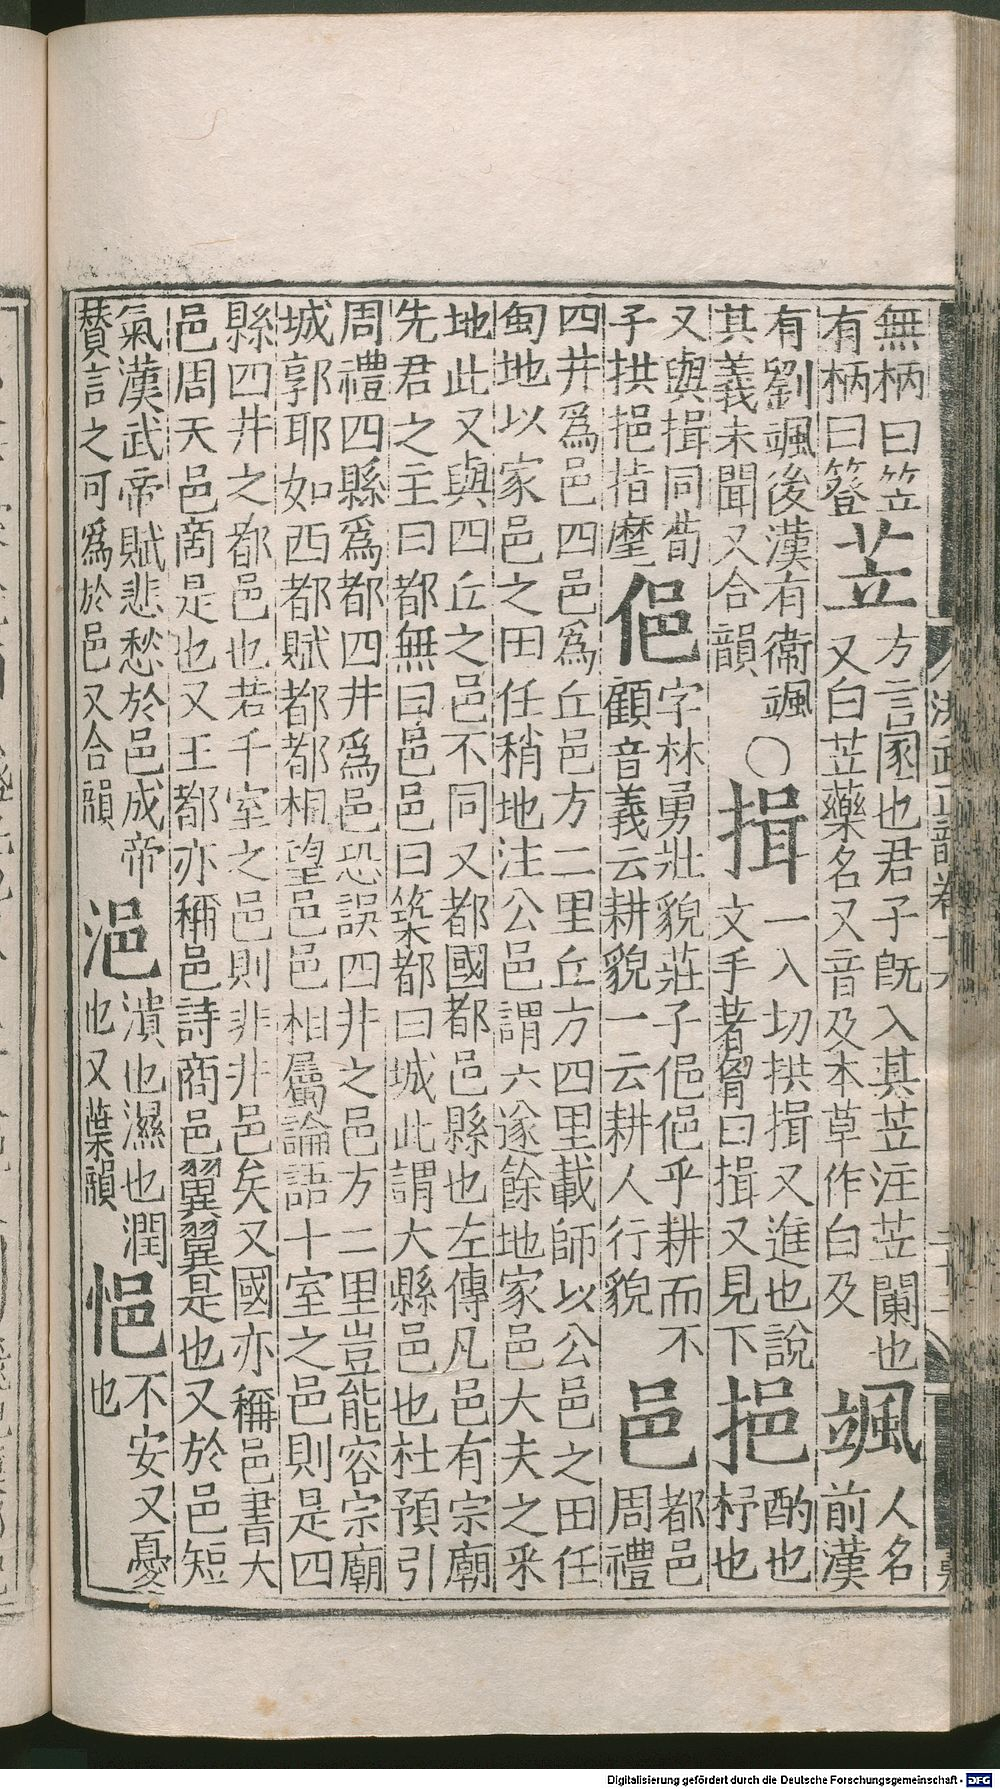 無柄曰笠
有柄曰簦
苙
方言圂也君子旣入其苙注苙闌也
又白苙藥名又音及本草作白及
颯
人名前漢
有劉颯後漢有衞颯
其義未聞又合韻
○
揖
一入切拱揖又進也說
文手著胷曰揖又見下
挹
酌也
杼也
又與揖同荀
子拱挹指麾
俋
字林勇壯貌莊子俋俋乎耕而不
顧音義云耕貌一云耕人行貌
邑
都邑
周禮
四井爲邑四邑爲丘邑方二里丘方四里載師以公邑之田任
甸地以家邑之田任稍地注公邑謂六遂餘地家邑大夫之采
地此又與四丘之邑不同又都國都邑縣也左傳凡邑有宗廟
先君之主曰都無曰邑邑曰築都曰城此謂大縣邑也杜預引
周禮四縣爲都四井爲邑恐誤四井之邑方二里豈能容宗廟
城郭耶如西都賦都都相望邑邑相屬論語十室之邑則是四
縣四井之都邑也若千室之邑則非井邑矣又國亦稱邑書大
邑周天邑商是也又王都亦稱邑詩商邑翼翼是也又於邑短
氣漢武帝賦悲愁於邑成帝
贊言之可爲於邑又合韻
浥
漬也濕也潤
也又葉韻
悒
不安又憂
也
洪武正韻卷十六